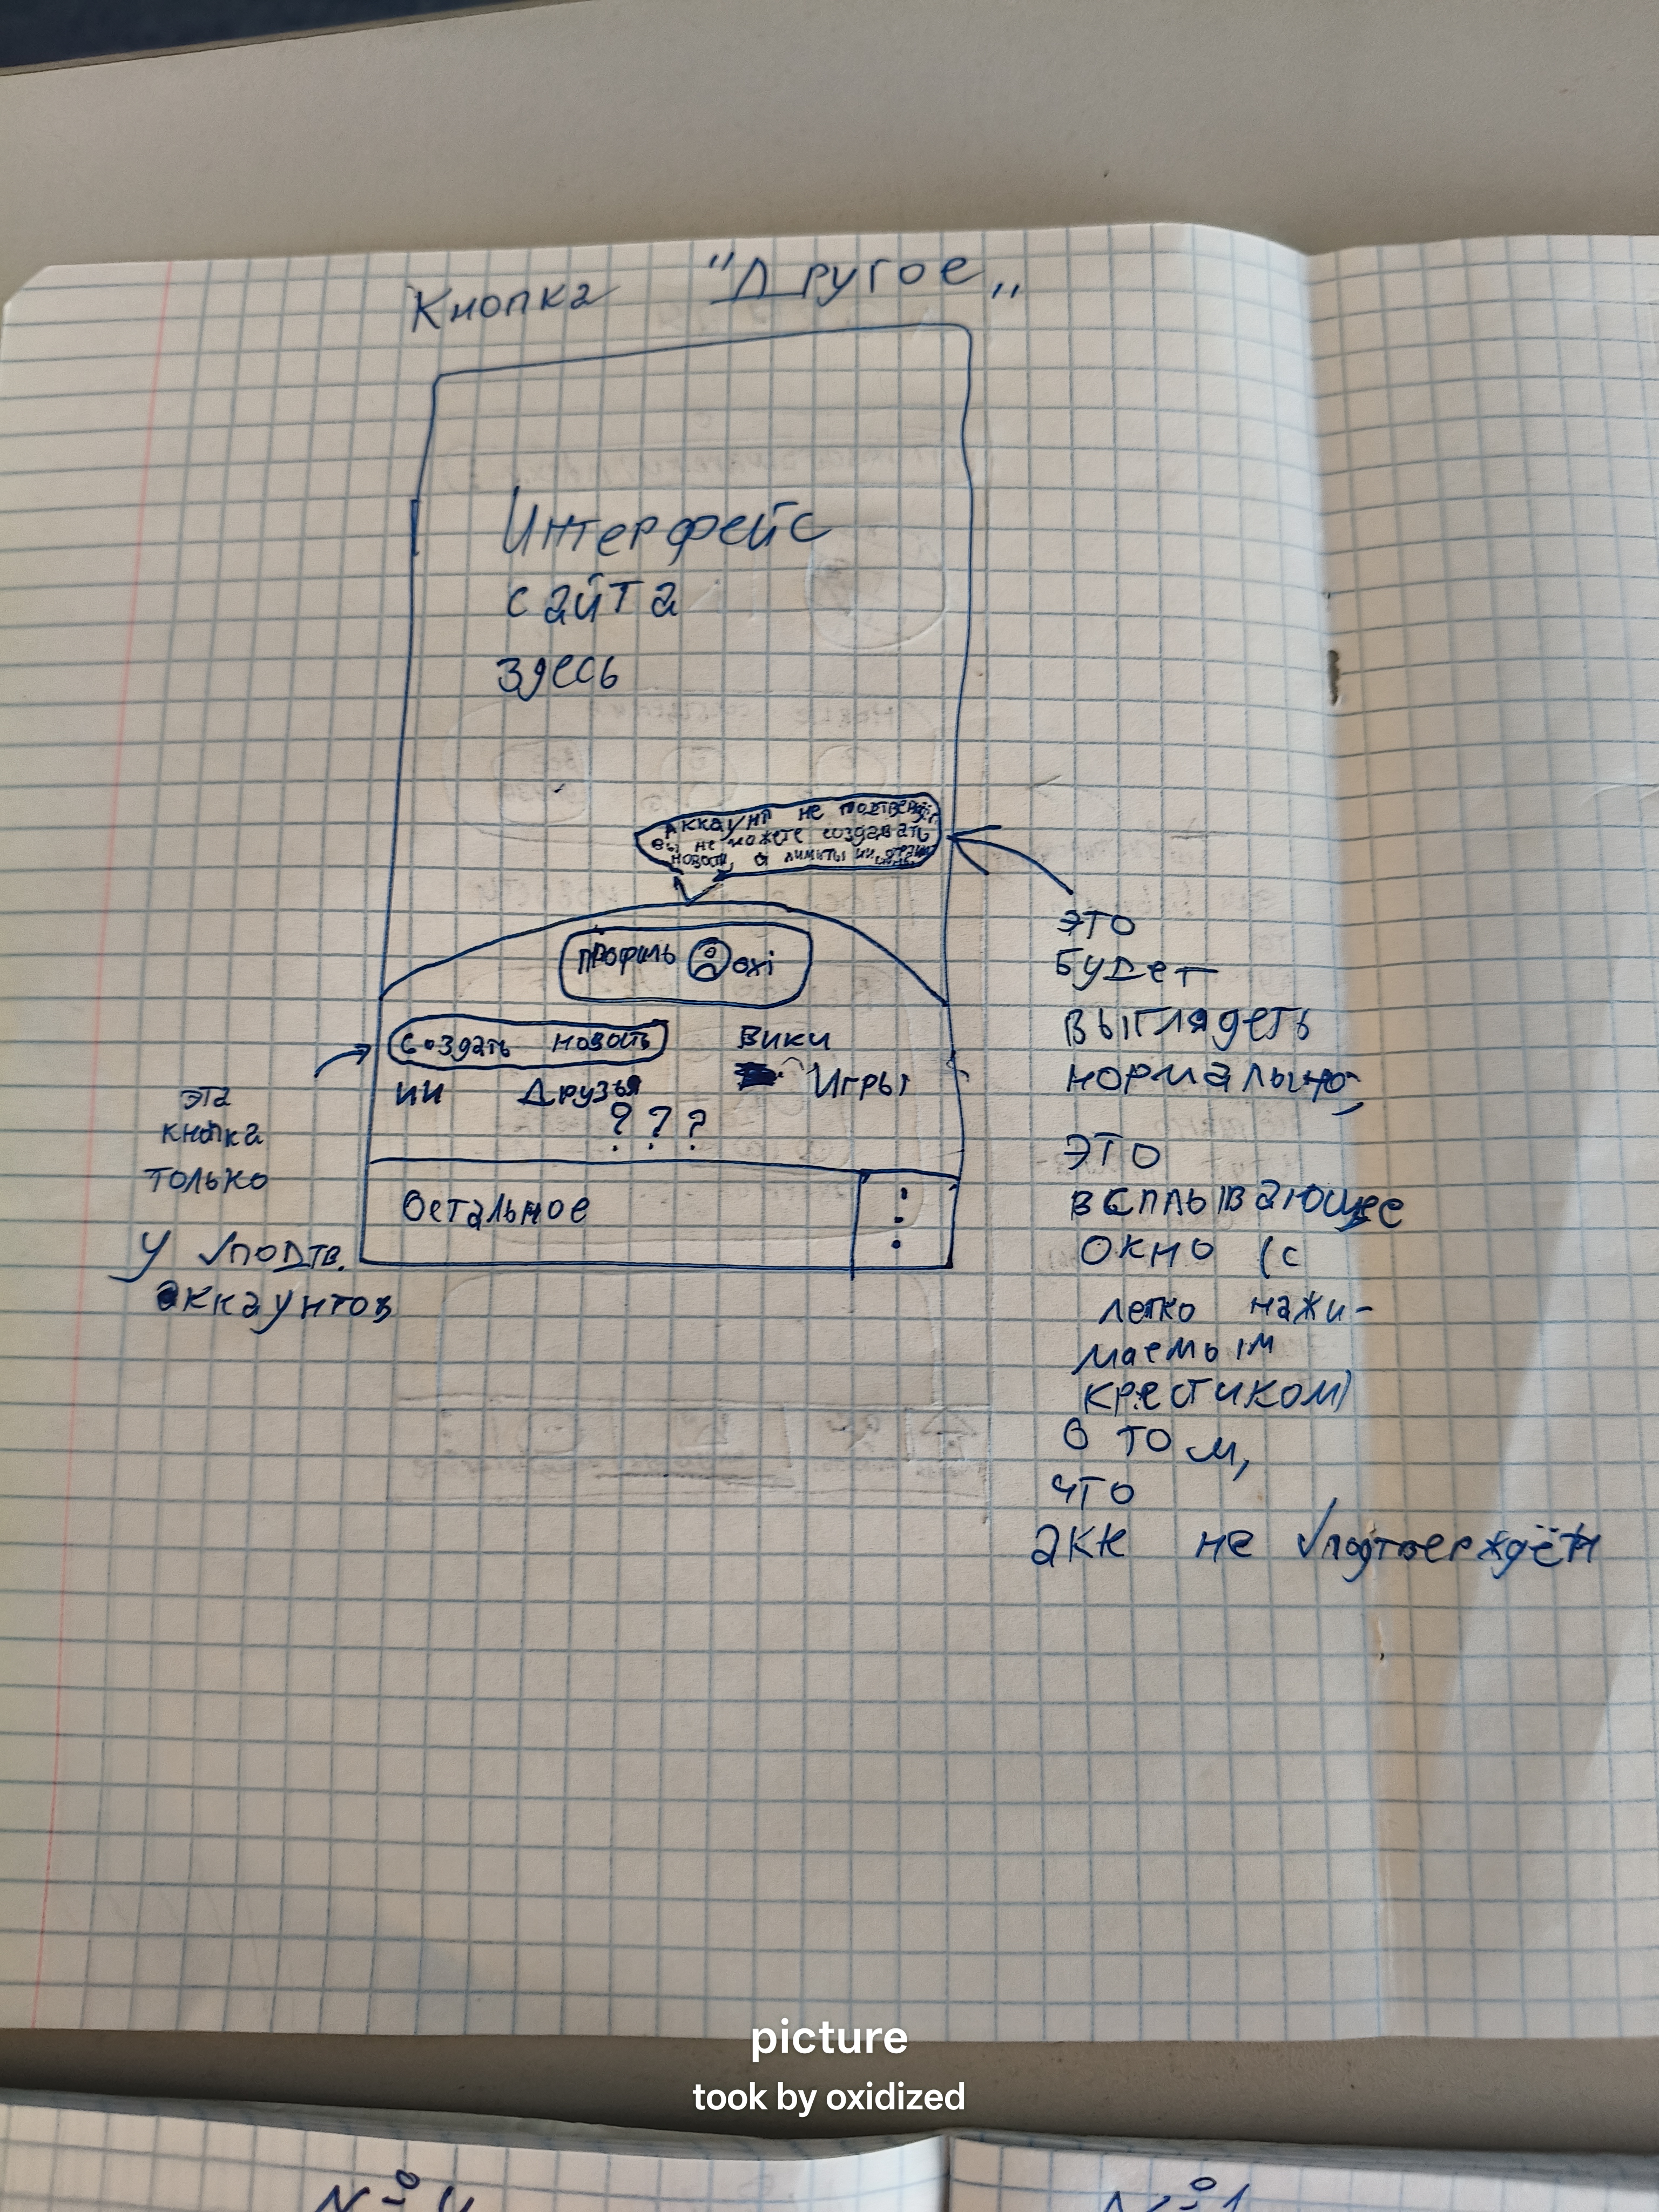 Кнопка "Другое„
Интерфейс
сайта
здесь
Аккаунт не подтверждён
вы не можете создавать
новости, а лимиты ии
Профиль oxi
Создать новость Вики
ии Друзья Игры
? ? ?
Остальное
эта
кнопка
только
у √подтв.
аккаунтов
это
будет
выглядеть
нормально,
это
всплывающее
окно (с
легко нажи-
маемым
крестиком)
о том,
что
акк не √подтверждён
picture
took by oxidized